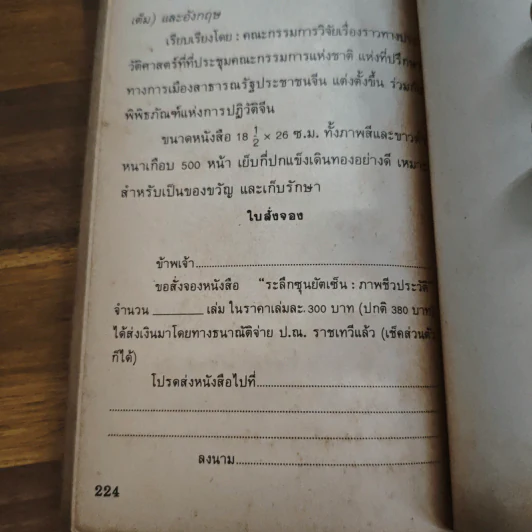 เต็ม) และอังกฤษ
เรียบเรียงโดย : คณะกรรมการวิจัยเรื่องราวทาง
วัติศาสตร์ที่ที่ประชุมคณะกรรมการแห่งชาติ แห่งที่ปรึก
ทางการเมืองสาธารณรัฐประชาชนจีน แต่งตั้งขึ้น ร่วม
พิพิธภัณฑ์แห่งการปฏิวัติจีน
ขนาดหนังสือ 18 1/2 × 26 ซ.ม. ทั้งภาพสีและขาว
หนาเกือบ 500 หน้า เย็บกี่ปกแข็งเดินทองอย่างดี เหมาะ
สำหรับเป็นของขวัญ และเก็บรักษา
ใบสั่งจอง
ข้าพเจ้า
ขอสั่งจองหนังสือ "ระลึกซุนยัตเซ็น : ภาพชีวประวัติ"
จำนวน ________ เล่ม ในราคาเล่มละ 300 บาท (ปกติ 380 บาท
ได้ส่งเงินมาโดยทางธนาณัติจ่าย ป.ณ. ราชเทวีแล้ว (เช็คส่วนตัว
ก็ได้)
โปรดส่งหนังสือไปที่
ลงนาม
224